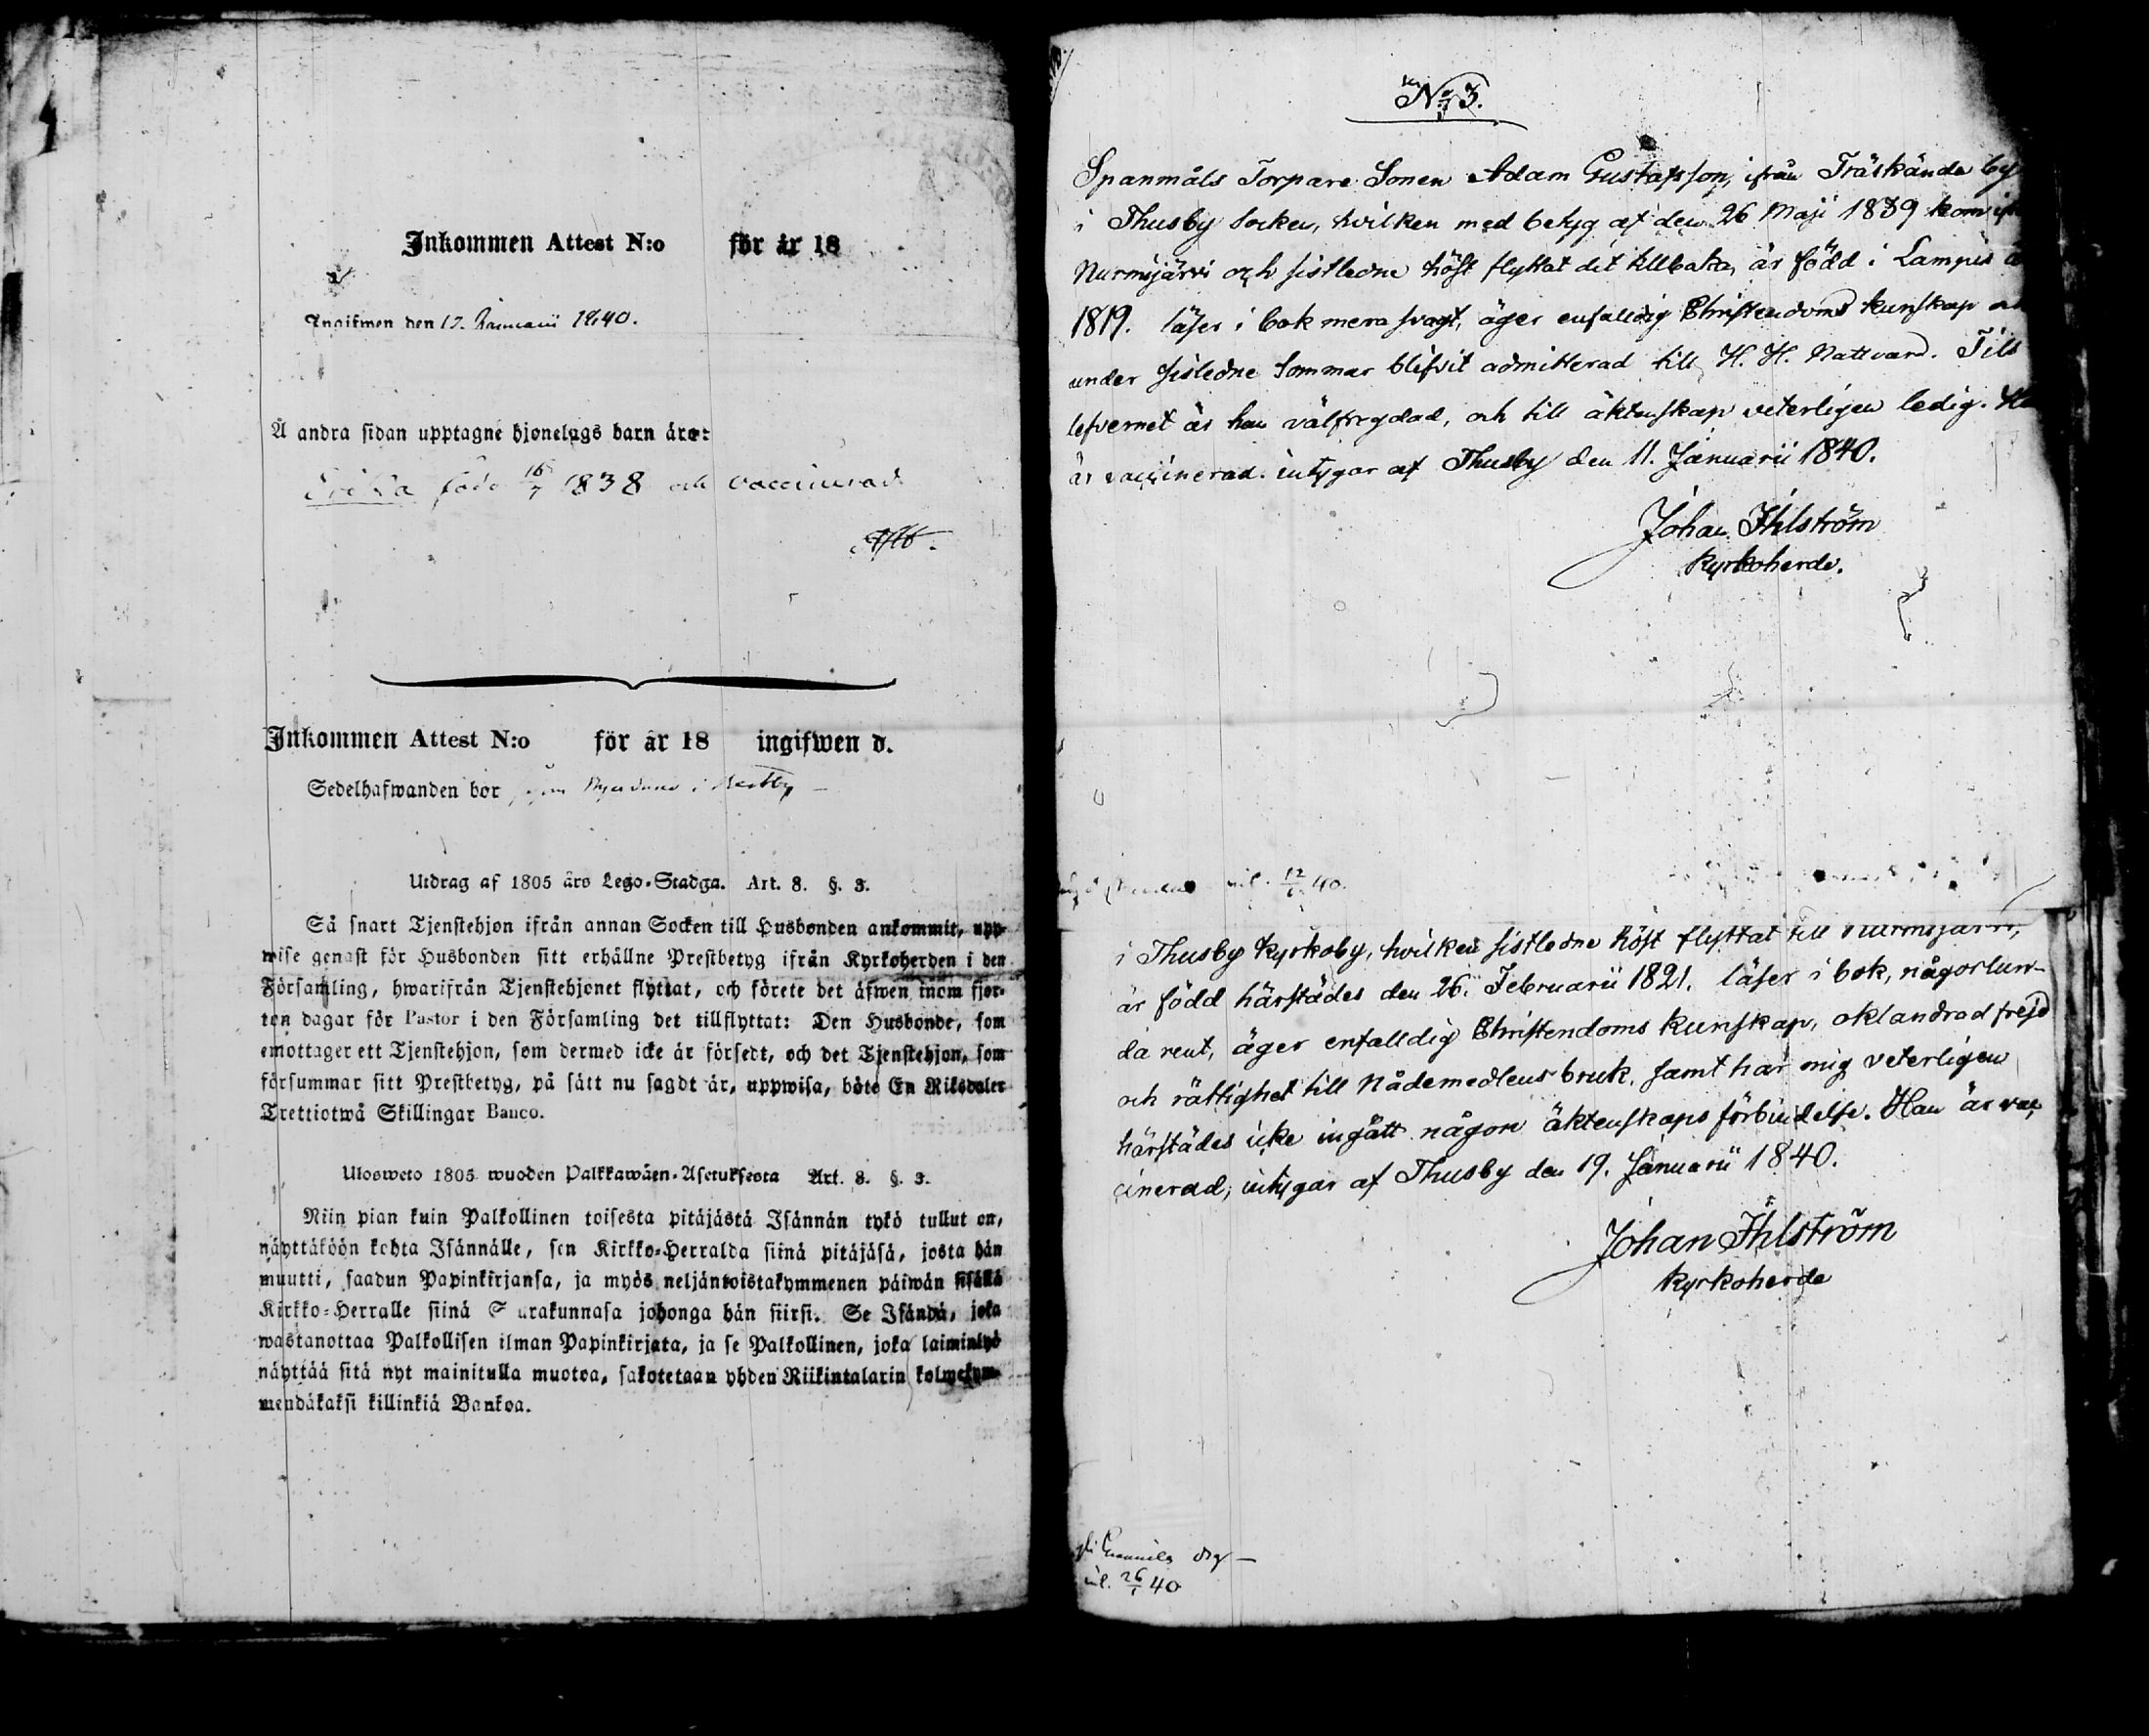 Inkommen Attest N:o för år 18
Ingifwen den 17. Januarii 1840.
Å andra sidan upptagne hjonelags barn äro:
Erika född 16/7 1838 och vaccinerad.
Inkommen Attest N:o för år 18 ingifwen d.
Sedelhafwanden bor
Utdrag af 1805 års Lego-Stadga. Art. 8. §. 3.
Så snart Tjenstehjon ifrån annan Socken till Husbonden ankommit, upp-
wise genast för Husbonden sitt erhållne Prestbetyg ifrån Kyrkoherden i den
Församling, hwarifrån Tjenstehjonet flyttat, och förete det äfwen inom fjor-
ton dagar för Pastor i den Församling det tillflyttat: Den Husbonde, som
emottager ett Tjenstehjon, som dermed icke är försedt, och det Tjenstehjon, som
försummar sitt Prestbetyg, på sätt nu sagdt är, uppwisa, böte En Riksdaler
Trettiotwå Skillingar Banco.
Ulosweto 1805 wuoden Palkkawäen-Asetuksesta Art. 8. §. 3.
Niin pian kuin Palkollinen toisesta pitäjästä Isännän tykö tullut on,
näyttäköön kohta Isännälle, sen Kirkko-Herralda siinä pitäjäsä, josta hän
muutti, saadun Papinkirjansa, ja myös neljäntoistakymmenen päiwän sisällä
Kirkko-Herralle siinä Seurakunnasa johonga hän siirsi. Se Isändä, joka
wastanottaa Palkollisen ilman Papinkirjata, ja se Palkollinen, joka laiminlyö
näyttää sitä nyt mainitulla muotoa, sakotetaan yhden Riikintalarin kolmekym-
mendäkaksi killinkiä Bankoa.
No 3.
Spanmåls Torpare Sonen Adam Gustafsson, ifrån Träskända by
i Thusby Socken, hvilken med betyg af den 26 Maji 1839 kom ifr
Nurmijärvi och sistledne höst flyttat dit tillbaka, är född i Lampis
1819. läser i bok mera svagt, äger enfalldig Christendoms kunskap
under sisledne Sommar blifvit admitterad till H. H. Nattvard. Till
lefvernet är han välfregdad, och till äktenskap veterligen ledig. H
är vaccinerad. intygar af Thusby den 11. Januarii 1840.
Johan Ihlström
Kyrkoherde.
12/1 40.
i Thusby Kyrkoby, hvilken sistledne höst flyttat till Nurmijärvi,
är född härstädes den 26. Februarii 1821. läser i bok, någorlun-
da rent, äger enfalldig Christendoms kunskap, oklandrad frejd
och rättighet till Nådemedlens bruk, samt har mig veterligen
härstädes icke ingått någon äktenskaps förbindelse. Han är vac
cinerad, intygar af Thusby den 19. Januarii 1840.
Johan Ihlström
Kyrkoherde
26/1 40